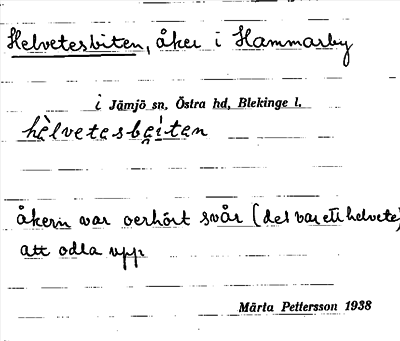 Helvetesbiten, åker i Hammarby
i Jämjö sn. Östra hd, Blekinge l.
hèlvetesbe̯iten
åkern var oerhört svår (det var ett helvete)
att odla upp
Märta Pettersson 1938